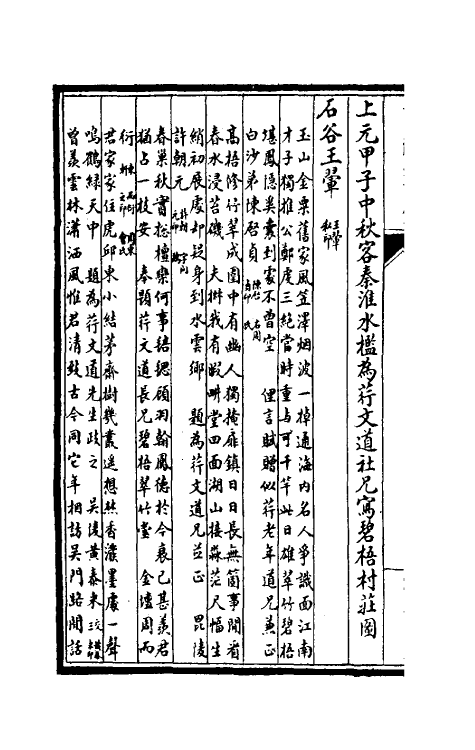 上元甲子中秋客秦淮水檻為荇文道社兄寫碧梧村莊圖
石谷王翬 王翬 私印
玉山金粟舊家風笠澤烟波一棹通海内名人爭識面江南
才子獨推公鄭虔三絶當時重与可千竿此日雄翠竹碧梧
堪鳳隱奚囊到處不曾空 俚言賦贈似荇老年道兄兼正
白沙弟陳啓貞
高梧修竹翠成圍中有幽人獨掩扉鎮日日長無箇事閒看
春水浸苔磯 夫椒我有暇畊堂四面湖山接淼茫尺幅生
綃初展處却疑身到水雲鄉 題為荇文道兄並正 毘陵
許朝元
春巢秋實總檀欒何事稽網顧羽翰鳳德於今衰已甚羨君
猶占一枝安 奉題荇文道長兄碧梧翠竹堂 金壇周而
衍
君家家住虎邱東小結茅齋樹幾叢遥想焚香濡墨處一聲
鳴鶴緑天中 題為荇文道先生政之 吳陵黄泰来
曾羨雲林瀟洒風惟君清致古今同它年相訪吳門路閒話